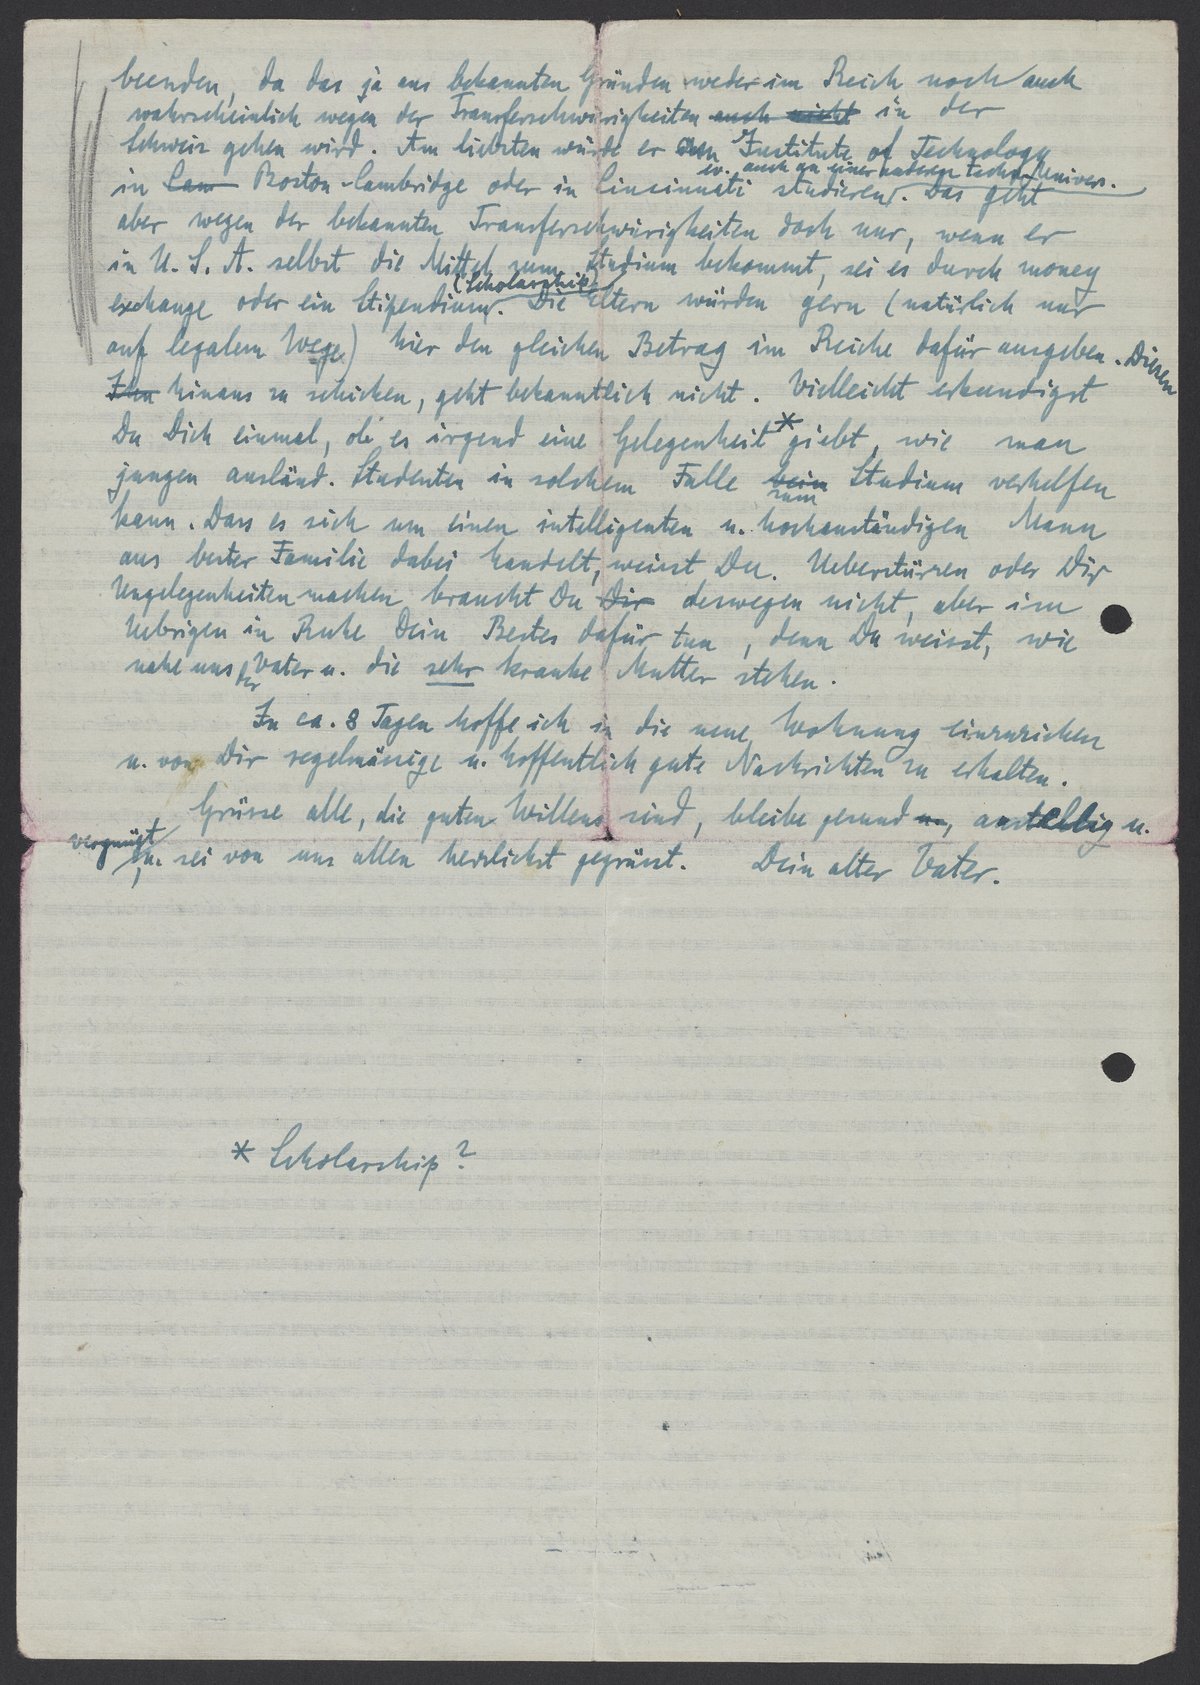 beenden, da das ja aus bekannten Gründen weder im Reich noch auch
wahrscheinlich wegen der Transferschwierigkeiten auch nicht in der
Schweiz gehen wird. Am liebsten würde er am Institute of Technology
ev. auch an einer anderen techn. Univers.
in Cam Boston-Cambridge oder in Cincinnati studieren. Das geht
aber wegen der bekannten Transferschwierigkeiten doch nur, wenn er
in U.S.A. selbst die Mittel zum Studium bekommt, sei es durch money
(Scholarship)
exchange oder ein Stipendium. Die Eltern würden gern (natürlich nur
auf legalem Wege) hier den gleichen Betrag im Reiche dafür ausgeben. Diesen
Ihn hinaus zu schicken, geht bekanntlich nicht. Vielleicht erkundigst
Du Dich einmal, ob es irgend eine Gelegenheit * giebt, wie man
jungen ausländ. Studenten in solchem Falle beim Studium verhelfen
zum
kann. Dass es sich um einen intelligenten u. hochanständigen Mann
aus bester Familie dabei handelt, weisst Du. Ueberstürzen oder Dir
Ungelegenheiten machen brauchst Du Dir deswegen nicht, aber im
Uebrigen in Ruhe Dein Bestes dafür tun, denn Du weisst, wie
nahe uns der Vater u. die sehr kranke Mutter stehen.
In ca. 8 Tagen hoffe ich in die neue Wohnung einzuziehen
u. von Dir regelmässige u. hoffentlich gute Nachrichten zu erhalten.
Grüsse alle, die guten Willens sind, bleibe gesund u., anstellig u.
vergnügt
, u. sei von uns allen herzlichst gegrüsst. Dein alter Vater.
* Scholarship?